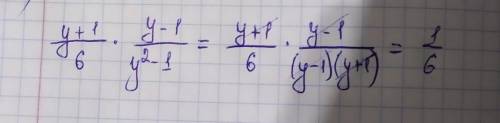 (y+1)/6 · (y-1)/(y²-1) = (y+1)/6 · (y-1)/((y-1)(y+1)) = 1/6